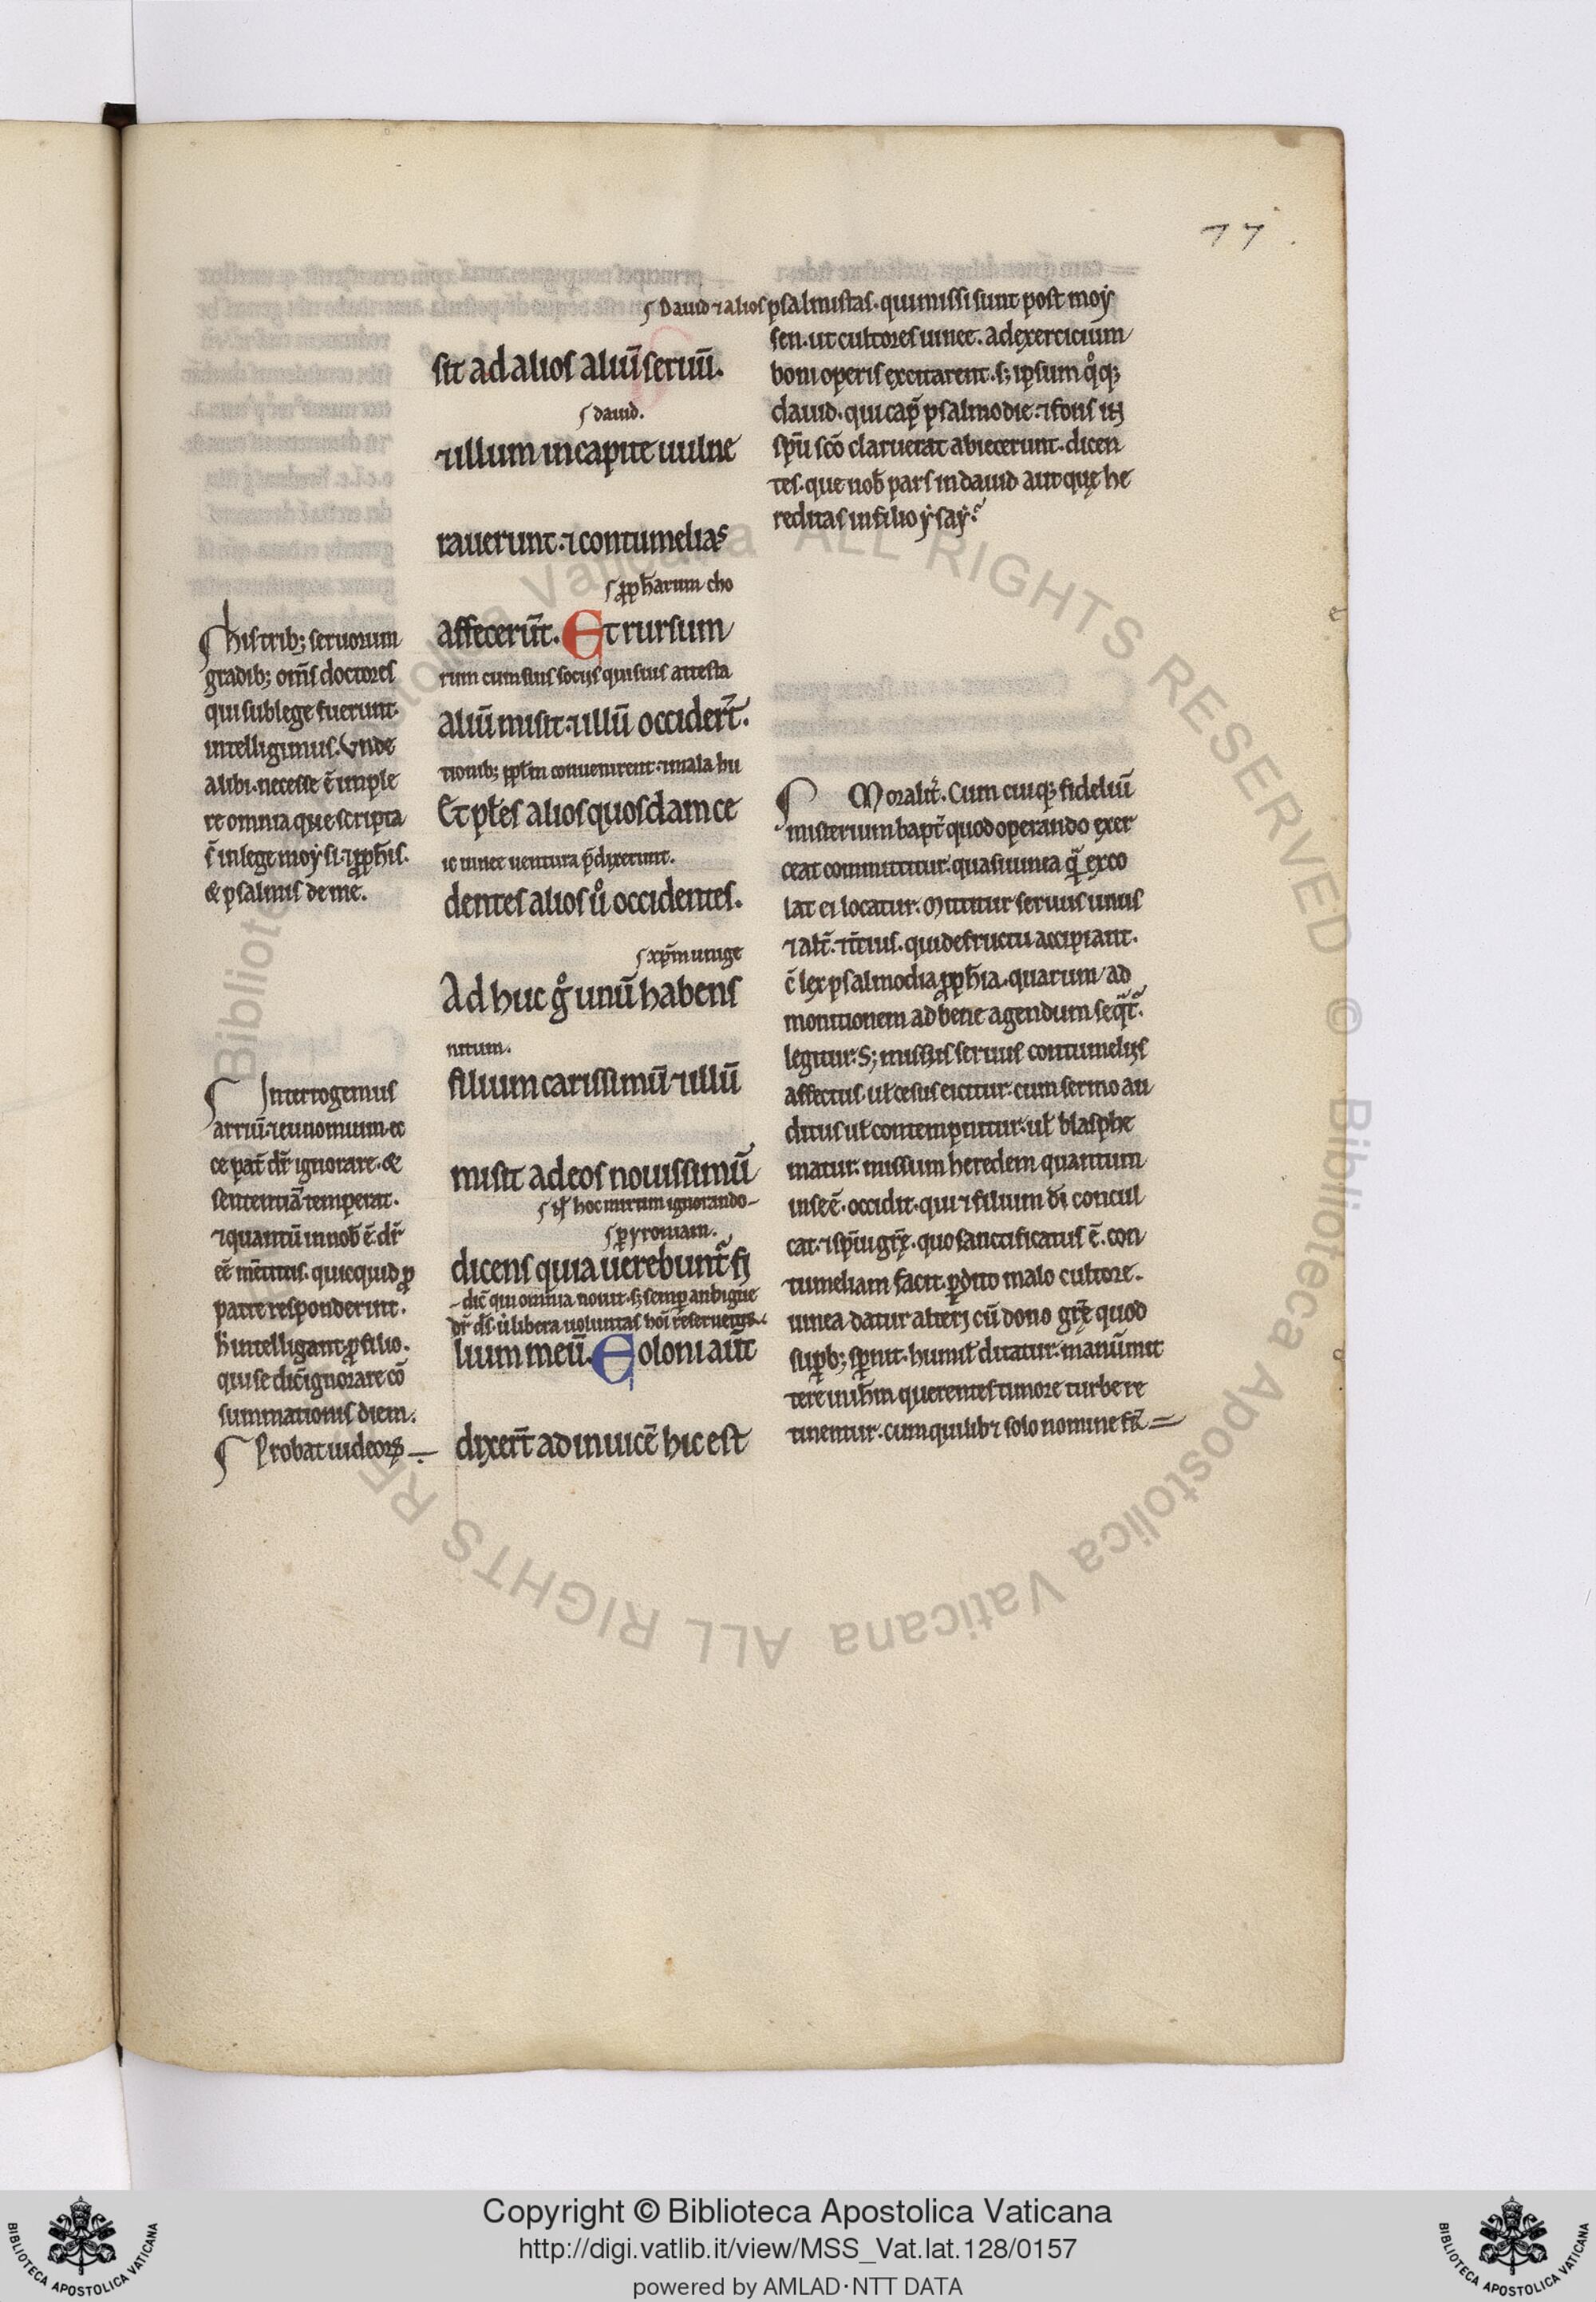 77
⸿ Dauid ⁊ alios psalmistas. qui missi sunt post moẏ
sen. ut cultores uinee. ad exercicium
boni operis excitarent. sꝫ ipsum qͦqꝫ
dauid. qui cap̄ psalmodie. ⁊ fons in
sp̄u scō claruerat abiecerunt. dicen
tes. que nob̄ pars in dauid aut quę he
reditas in filio ẏsaẏ.
sit ad alios aliū seruū.
⸿ dauid.
⁊ illum in capite uulne
rauerunt. ⁊ contumelias
⸿ ꝓph̄arum cho
affecerūt. Et rursum
rum cum suis sociis quisius attesta
aliū misit. ⁊ illū occiderūt.
tionibꝫ pp̄lm conuenirent. ⁊ mala hu
Et pl̄es alios quosdam ce
ic uinee uentura p̄dixerunt.
dentes alios ů occidentes.
⸿ xp̄m unige
Ad huc gͦ unū habens
nitum.
filium carissimū ⁊ illū
misit ad eos nouissimū
⸿ hoc mirum ignorando
⸿ p̱ yroniam.
dicens quia uerebunt᷑ fi
dic̄ qui omnia nouit. sꝫ semp̱ ambigue
dr̄ ds̄. ut libera uoluntas hoī reseruetur.
lium meū. Coloni aūt
dixerūt ad inuicē hic est
⸿ his tribꝫ seruorum
gradibꝫ om̄s doctores
qui sub lege fuerunt
intelligimus. Vnde
alibi. necesse ē imple
re omnia que scripta
s̄ in lege moẏsi. ⁊ ꝓph̄is.
& psalmis de me.
⸿ Interrogemus
arriū. ⁊ eunomium. ec
ce pat̄ dr̄ ignorare. &
sententiā temperat.
⁊ quantū in nob̄ ē. dr̄
eē mētitus. quicquid ꝓ
patre responderint.
h̄ intelligant ꝓ filio.
qui se dic̄ ignorare cō
summationis diem.
⸿ Probat iudeoꝝ
⸿ Moralit᷑. Cum cuiqꝫ fideliū
misterium bapt̄ quod operando exer
ceat committitur. quasi uinea qᷓ exco
lat ei locatur. Mittitur seruus unus
⁊ alt̄. ⁊ t̄tius. qui de fructu accipiant.
c̄ lex psalmodia ꝓph̄ia. quarum ad
monitionem ad bene agendum
legitur. Sꝫ missus seruus contumeliis
affectus. ul̄ cesus eicitur. cum sermo au
ditus ul̄ contempnitur. ul̄ blasphe
matur. missum heredem quantum
in se ē. occidit. qui ⁊ filium dī concul
cat. ⁊ sp̄ui grę̄. quo sanctificatus ē. con
tumeliam facit. p̱dito malo cultore.
uinea datur alteri cū dono grę̄ quod
sup̱bꝫ sp̱nit. humil̄ ditatur. manū mit
tere in ih̄m querentes timore turbe re
tinentur. cum quilibꝫ solo nomine
Copyright © Biblioteca Apostolica Vaticana
http://digi.vatlib.it/view/MSS_Vat.lat.128/0157
powered by AMLAD·NTT DATA
BIBLIOTECA APOSTOLICA VATICANA
BIBLIOTECA APOSTOLICA VATICANA
© Biblioteca Apostolica Vaticana ALL RIGHTS RESERVED